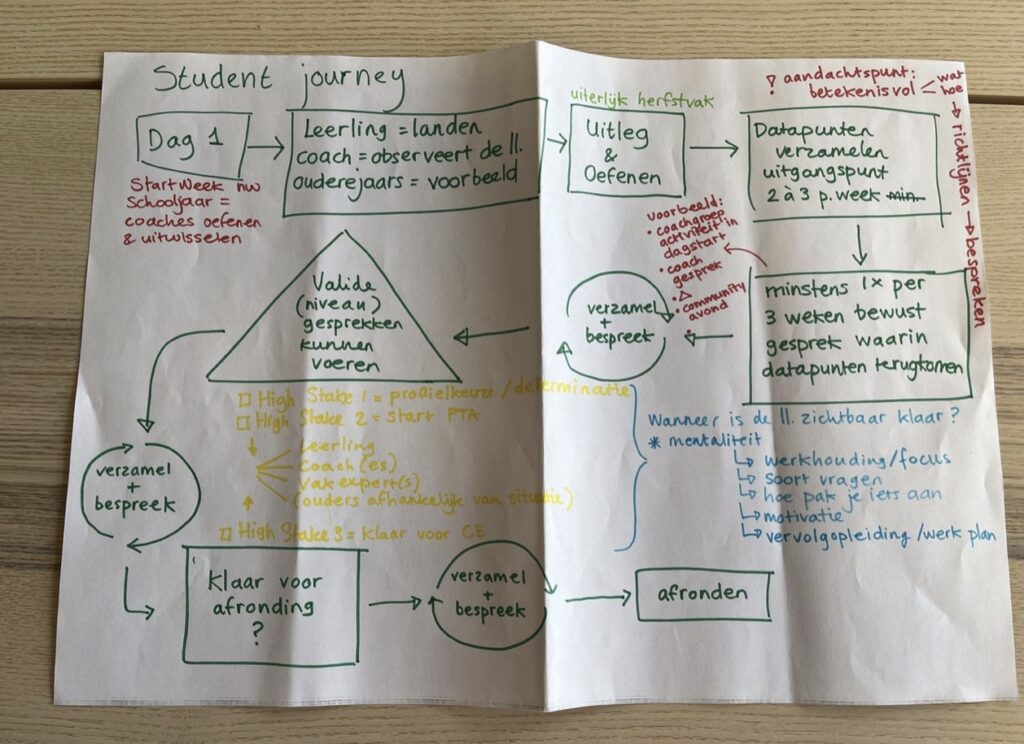 Student journey
Dag 1
Startweek nw
Schooljaar =
coaches oefenen
& uitwisselen
Leerling = landen
coach = observeert de ll.
ouderejaars = voorbeeld
uiterlijk herfstvak
Uitleg
&
Oefenen
! aandachtspunt:
betekenisvol
wat
hoe
→ richtlijnen → bespreken
Datapunten
verzamelen
uitgangspunt
2 à 3 p. week min.
minstens 1x per
3 weken bewust
gesprek waarin
datapunten terugkomen
voorbeeld:
• coachgroep
activiteit in
dagstart
• coach
gesprek
• △
• community
avond
•
verzamel
+
bespreek
Valide
(niveau)
gesprekken
kunnen
voeren
□ High Stake 1 = profielkeuze / determinatie
□ High Stake 2 = start PTA
Leerling
Coach(es)
Vakexpert(s)
(ouders afhankelijk van situatie)
□ High Stake 3 = klaar voor CE
Wanneer is de ll. zichtbaar klaar?
* mentaliteit
↳ werkhouding/focus
↳ soort vragen
↳ hoe pak je iets aan
↳ motivatie
↳ vervolgopleiding/werk plan
verzamel
+
bespreek
Klaar voor
afronding
?
verzamel
+
bespreek
afronden